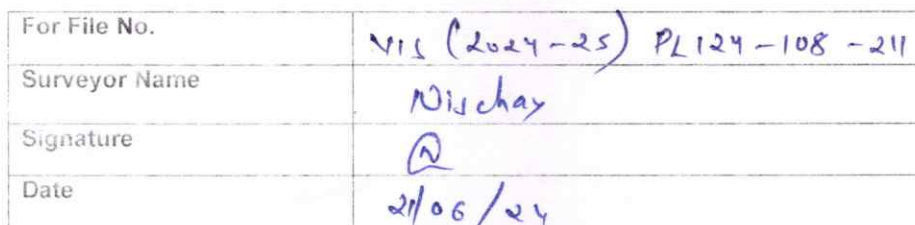 For File No. VIS (2024-25) PL124-108-211
Surveyor Name Nischay
Signature
Date 21/06/24